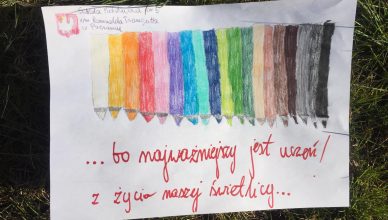 Szkoła Podstawowa nr 5
im. Romualda Traugutta
w Poznaniu
... bo najważniejszy jest uczeń!
z życia naszej świetlicy...